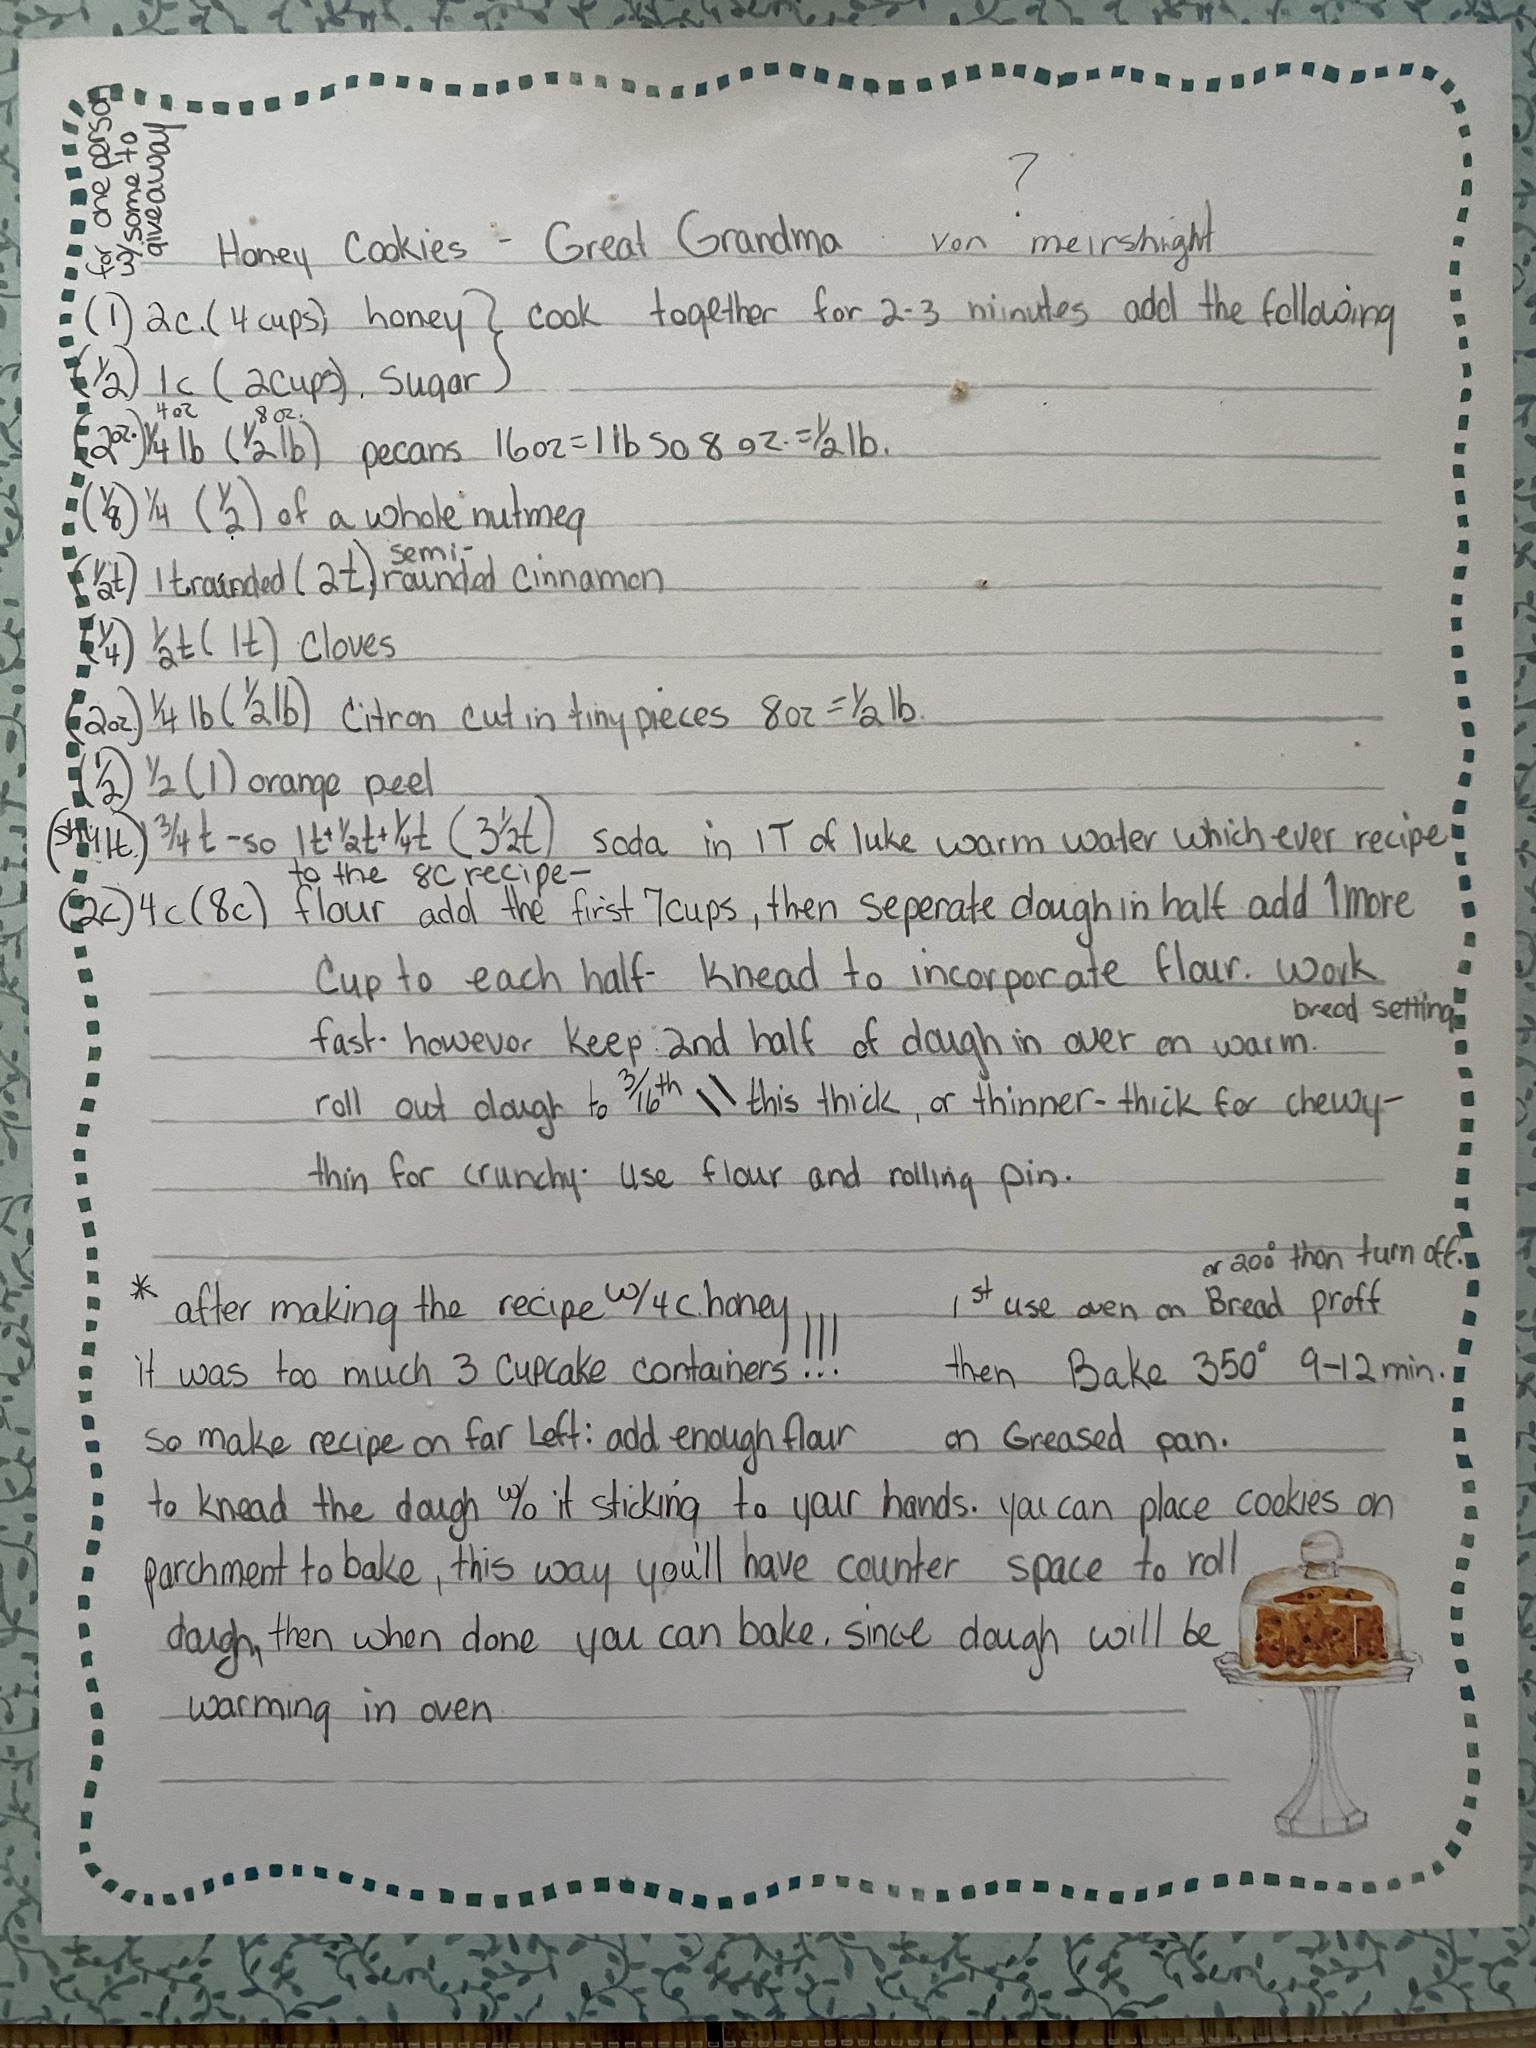 for one person
w/some to
giveaway
?
Honey Cookies - Great Grandma von meirshight
(1) 2c. (4 cups) honey } cook together for 2-3 minutes add the following
(1/2) 1c (2cups). Sugar
4oz 8oz.
(2oz.) 1/4 lb (1/2 lb) pecans 16oz = 1lb so 8 oz. = 1/2 lb.
(1/8) 1/4 (1/2) of a whole nutmeg
semi-
(1/2t) 1t rounded (2t) rounded cinnamon
(1/4) 1/2t (1t) cloves
(2oz.) 1/4 lb (1/2 lb) citron cut in tiny pieces 8oz = 1/2 lb.
(1/2) 1/2 (1) orange peel
(shy 1t.) 1 3/4 t - so 1t + 1/2t + 1/4t (3 1/2t) soda in 1T of luke warm water which ever recipe
to the 8c recipe-
(2c) 4c (8c) flour add the first 7cups, then seperate dough in half add 1 more
cup to each half- knead to incorporate flour. work
bread setting
fast. however keep 2nd half of dough in over on warm.
roll out dough to 3/16th \\ this thick, or thinner- thick for chewy-
thin for crunchy. use flour and rolling pin.
or 200° then turn off.
* after making the recipe w/4c. honey 1st use oven on Bread proff
it was too much 3 cupcake containers!!! then Bake 350° 9-12 min.
so make recipe on far Left: add enough flour on Greased pan.
to knead the dough w/o it sticking to your hands. you can place cookies on
parchment to bake, this way you'll have counter space to roll
dough, then when done you can bake. since dough will be
warming in oven